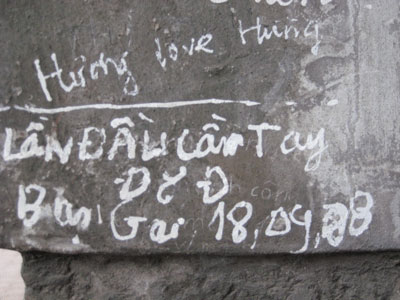 Hường love Hưng
LầNĐẦU Cầm Tay
Bạn Gái 18,09,08